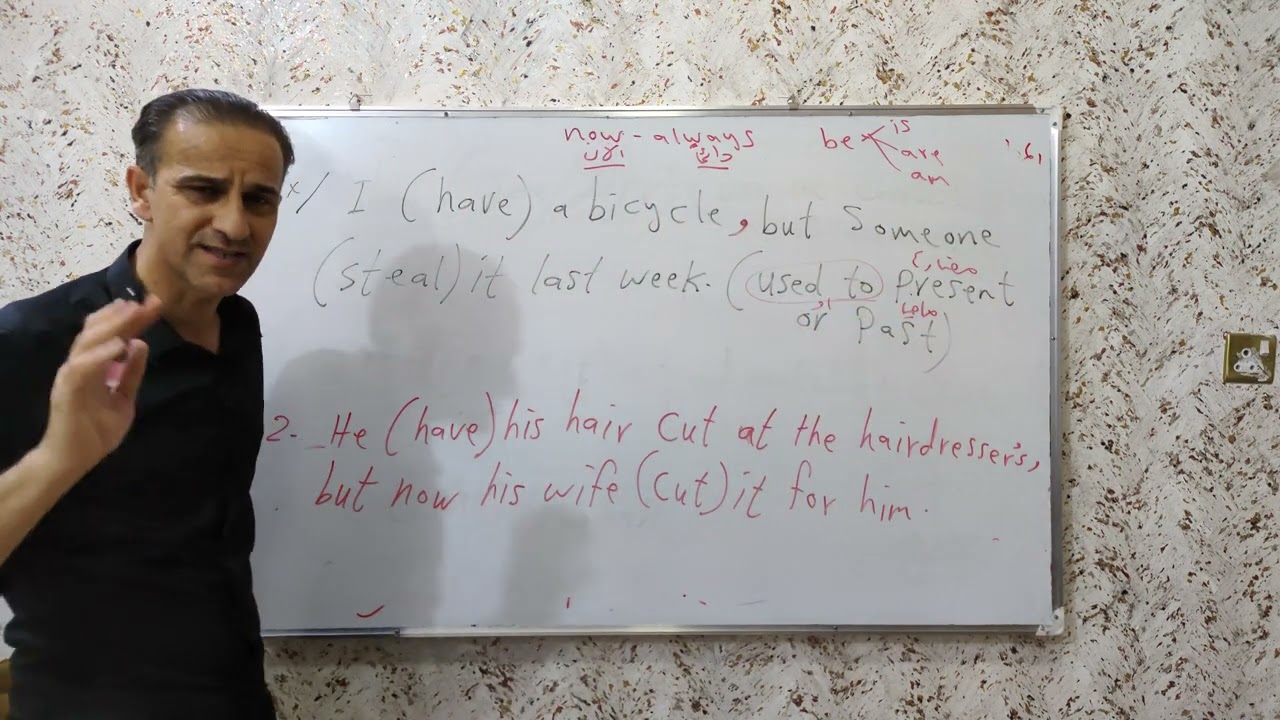 now - always
الآن دائماً
be is
are
am
x/ I (have) a bicycle, but Someone
(steal) it last week. (used to Present
مضارع
or Past)
ماضي
2. He (have) his hair Cut at the hairdresser's,
but now his wife (Cut) it for him.